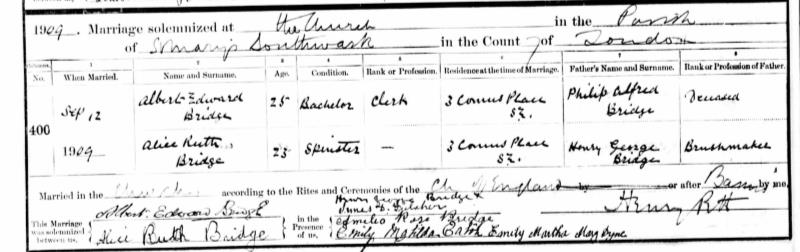 1909. Marriage solemnized at the Church in the Parish
of St Mary's Southwark in the County of London
1 2 3 4 5 6 7 8
No. When Married. Name and Surname. Age. Condition. Rank or Profession. Residence at the time of Marriage. Father's Name and Surname. Rank or Profession of Father.
400
Sep 12 Albert Edward 25 Bachelor Clerk 3 Comus Place Philip Alfred Deceased
Bridge S.E. Bridge
1909 Alice Ruth 25 Spinster — 3 Comus Place Henry George Brushmaker
Bridge S.E. Bridge
Married in the according to the Rites and Ceremonies of the Ch of England by or after Banns by me,
This Marriage was solemnized between us, Albert Edward Bridge
Alice Ruth Bridge
in the Presence of us, Henry George Bridge
Emily Matilda Emily Martha May
Rose Bridge
Henry